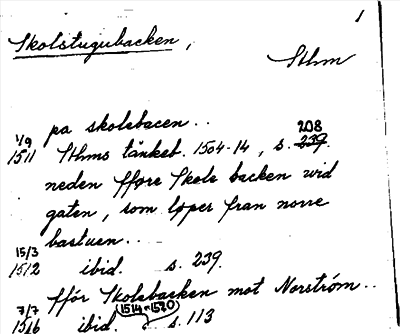 1
Skolstugubacken,
Sthm
pa skolebacen..
1/9 1511 Sthms tänkeb. 1504-14, s. 239. 208
neden fføre Skole backen wid
gaten, som løper fran norre
bastuen..
15/3 1512 ibid. s. 239.
fför Skolebacken mot Norstrøm..
7/7 1516 ibid. 1514-1520 s. 113